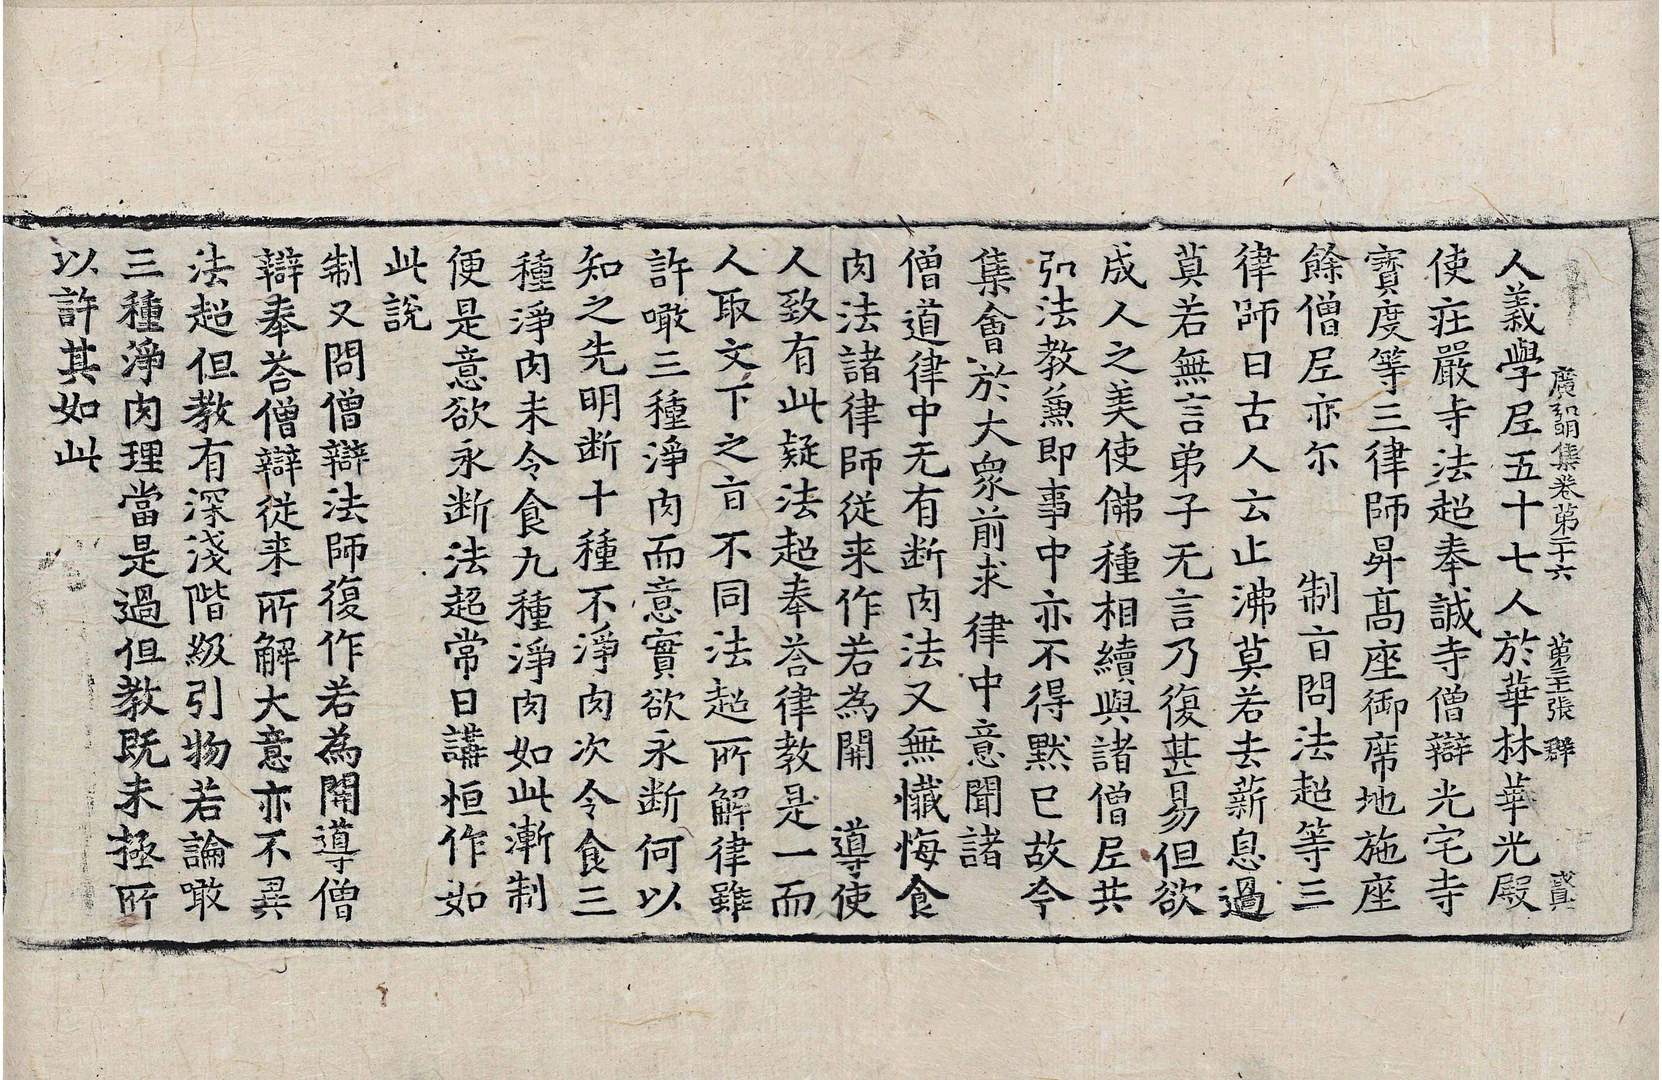 廣弘明集卷第二十六 第三王張 群
人義學尼五十七人於華林華光殿
使莊嚴寺法超奉誠寺僧辯光宅寺
寶度等三律師昇髙座御席地施座
餘僧尼亦尔 制㫖問法超等三
律師曰古人云止沸莫若去薪息過
莫若無言弟子无言乃復甚易但欲
成人之美使佛種相續與諸僧尼共
弘法教兼即事中亦不得黙已故今
集會於大衆前求律中意聞諸
僧道律中无有断肉法又無懺悔食
肉法諸律師従来作若為開 導使
人致有此疑法超奉荅律教是一而
人取文下之㫖不同法超所解律雖
許噉三種淨肉而意實欲永断何以
知之先明断十種不淨肉次令食三
種淨肉未令食九種淨肉如此漸制
便是意欲永断法超常日講恒作如
此說
制又問僧辯法師復作若為開導僧
辯奉荅僧辯従来所解大意亦不異
法超但教有深淺階級引物若論噉
三種淨肉理當是過但教既未極所
以許其如此